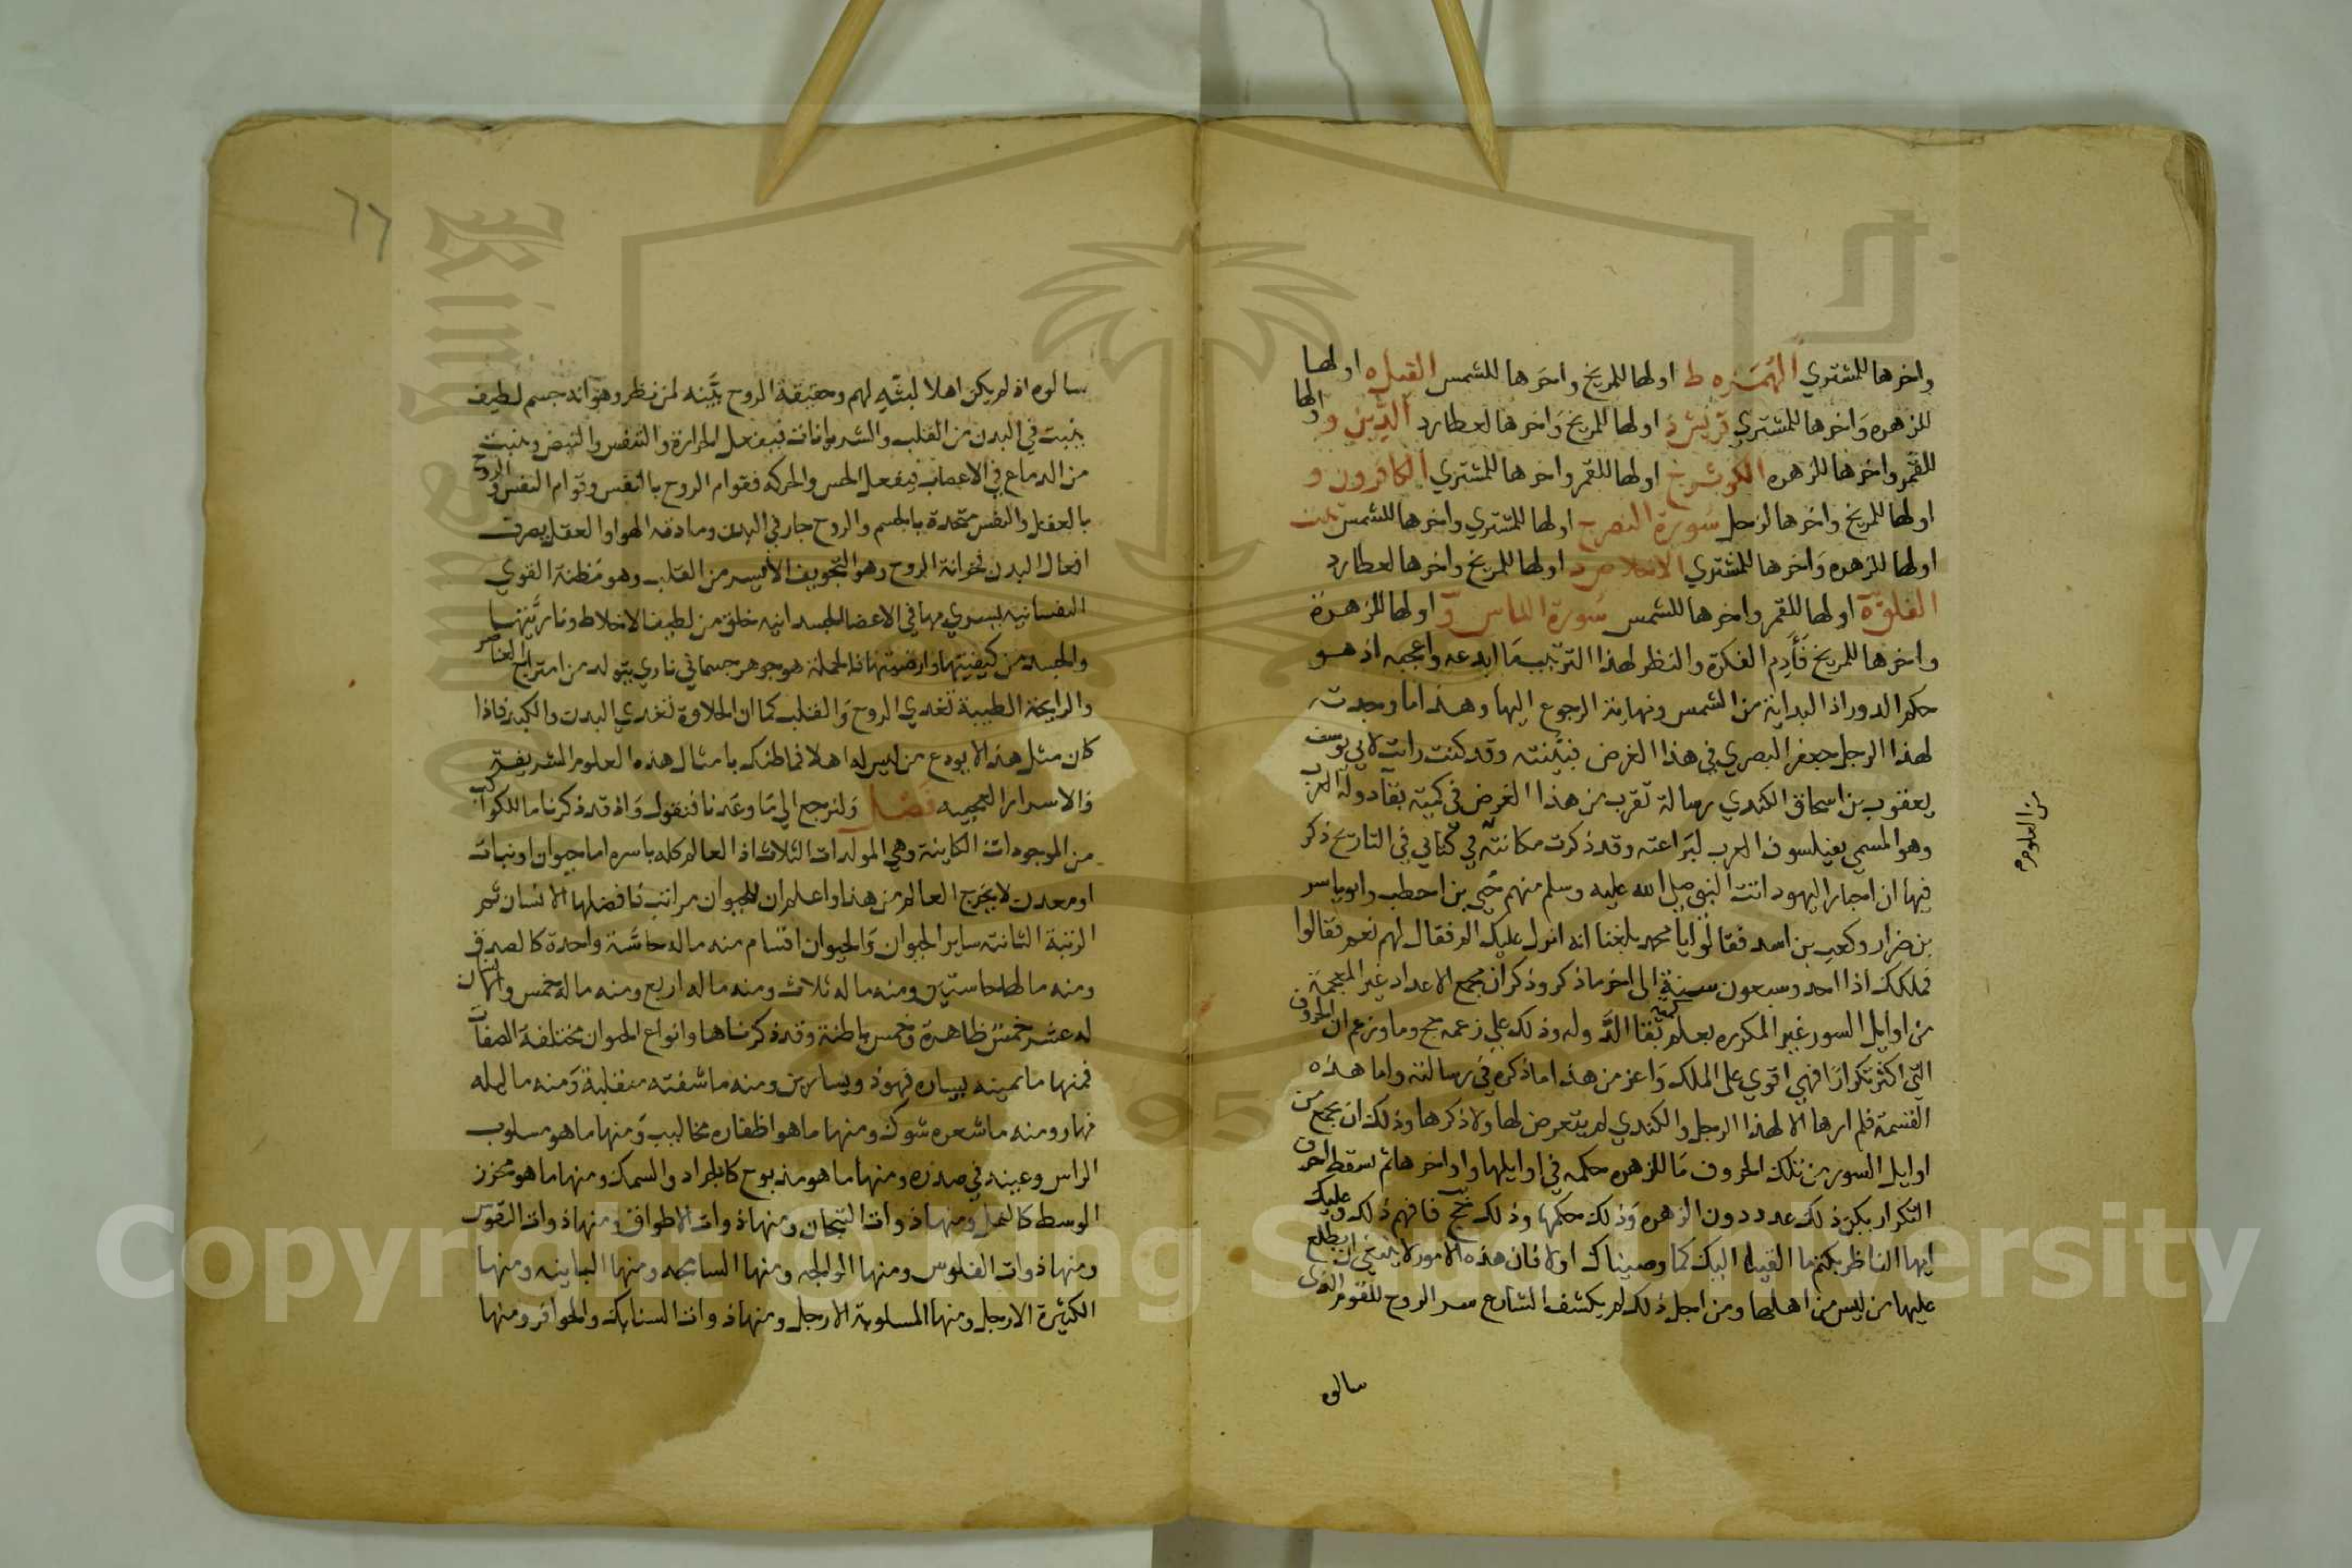 واخرها للمشتري الهمزه ط اولها للمريخ واخرها للشمس الفيل ه اولها
للزهره واخرها للمشتري قريش د اولها للمريخ واخرها لعطارد الدين و اولها
للقمر واخرها للزهره الكوثر ج اولها للقمر واخرها للمشتري الكافرون و
اولها للمريخ واخرها لزحل سورة النصر ج اولها للمشتري واخرها للشمس تبت
اولها للزهره واخرها للمشتري الاخلاص د اولها للمريخ واخرها لعطارد
الفلق ه اولها للقمر واخرها للشمس سورة الناس و اولها للزهرة
واخرها للمريخ فأدم الفكرة والنظر لهذا الترتيب ما ابدعه واعجبه اذ هو
حكم الدور اذ البداية من الشمس ونهاية الرجوع اليها وهذا ما وجدت
لهذا الرجل جعفر البصري في هذا الغرض فبينته وقد كنت رايت لابي يوسف
يعقوب بن اسحاق الكندي رسالة تقرب من هذا الغرض في كمية بقآ دولة العرب
وهو المسمي بفيلسوف العرب لبراعته وقد ذكرت مكانته في كتابي في التاريخ ذكر
فيها ان احبار اليهود اتت النبي صلى الله عليه وسلم منهم حيي بن احطب وابو ياسر
بن ضرار وكعب بن اسد فقالوا يا محمد بلغنا انه انزل عليك الم فقال لهم نعم فقالوا
فملكك اذا احد وسبعون سنة الى اخر ما ذكر وذكر ان مجمع الاعداد غير المعجمة
من اوايل السور غير المكرره يعلم كمية بقا الدوله وذلك علي زعمه وزعم ان الحروف
التي اكثر تكرارا فهي اقوي على الملك واعز من هذا ما ذكره في رسالته واما هذه
القسمة فلم ارها الا لهذا الرجل والكندي لم يتعرض لها ولا ذكرها وذلك ان يجمع من
اوايل السور من تلك الحروف ما للزهره حكمه في اوايلها واواخرها ثم تسقط احرف
التكرار يكن ذلك عدد دون الزهره وذلك حكمها وذلك فافهم ذلك وعليك
ايها الناظر بكتم ما القينا اليك كما وصيناك اولا فان هذه الامور لا ينبغي ان يطلع
عليها من ليس من اهلها ومن اجل ذلك لم يكشف الشارع سر الروح للقوم الذي
سالوه
من العلوم
٦٦
سالوه اذ لم يكن اهلا لبثه لهم وحقيقة الروح بينه لمن نظر وهو انه جسم لطيف
ينبت في البدن من القلب والشريانات فيفعل الحرارة والتنفس والنبض وينبت
من الدماغ في الاعصاب فيفعل الحس والحركه فقوام الروح بالنفس وقوام النفس والروح
بالعقل والنفس متحدة بالجسم والروح جار في البدن ومادته الهوا والعقل يصرف
افعال البدن خزانة الروح وهو التجويف الايسر من القلب وهو مظنة القوي
النفسانيه يسري بها في الاعضا الجسدانيه خلق من لطيف الاخلاط
والجسد من كيفيتها وارضيتها فالجملة هو جوهر جسماني ناري يتولد من امتزاج العناصر
والرايحة الطيبة تغدي الروح والقلب كما ان الحلاوة تغدي البدن والكبد فاذا
كان مثل هذا لا يودع من ليس له اهلا فما ظنك بامثال هذه العلوم الشريفة
والاسرار العجيبه فصل ولنرجع الي ما وعدنا فنقول واذ قد ذكرنا ما للكواكب
من الموجودات الكاينة وهي المولدات الثلاث اذ العالم كله باسره اما حيوان او نبات
او معدن لا يخرج العالم من هذا واعلم ان للحيوان مراتب فافضلها الانسان ثم
الرتبة الثانية ساير الحيوان والحيوان اقسام منه ما له حاسة واحدة كالصدف
ومنه ما لها حاستين ومنه ما له ثلاث ومنه ما له اربع ومنه ما له خمس والانسان
له عشر خمس ظاهرة وخمس باطنة وقد ذكرناها وانواع الحيوان مختلفة الصفات
فمنها ما يمينه يساره فهو ذو يسارين ومنه ما شفته منقلبة ومنه ما ليله
نهار ومنه ما شعره شوك ومنها ما هو اظفاره مخاليب ومنها ما هو مسلوب
الراس وعينه في صدره ومنها ما هو مذبوح كالجراد والسمك ومنها ما هو محزز
الوسط كالنمل ومنها ذوات التيجان ومنها ذوات الاطواق ومنها ذوات القوس
ومنها ذوات الفلوس ومنها الوالجه ومنها السابحه ومنها ومنها
الكثيرة الارجل ومنها المسلوبة الارجل ومنها ذوات السنابك والحوافر ومنها
King Saud
1957
Copyright © King Saud University